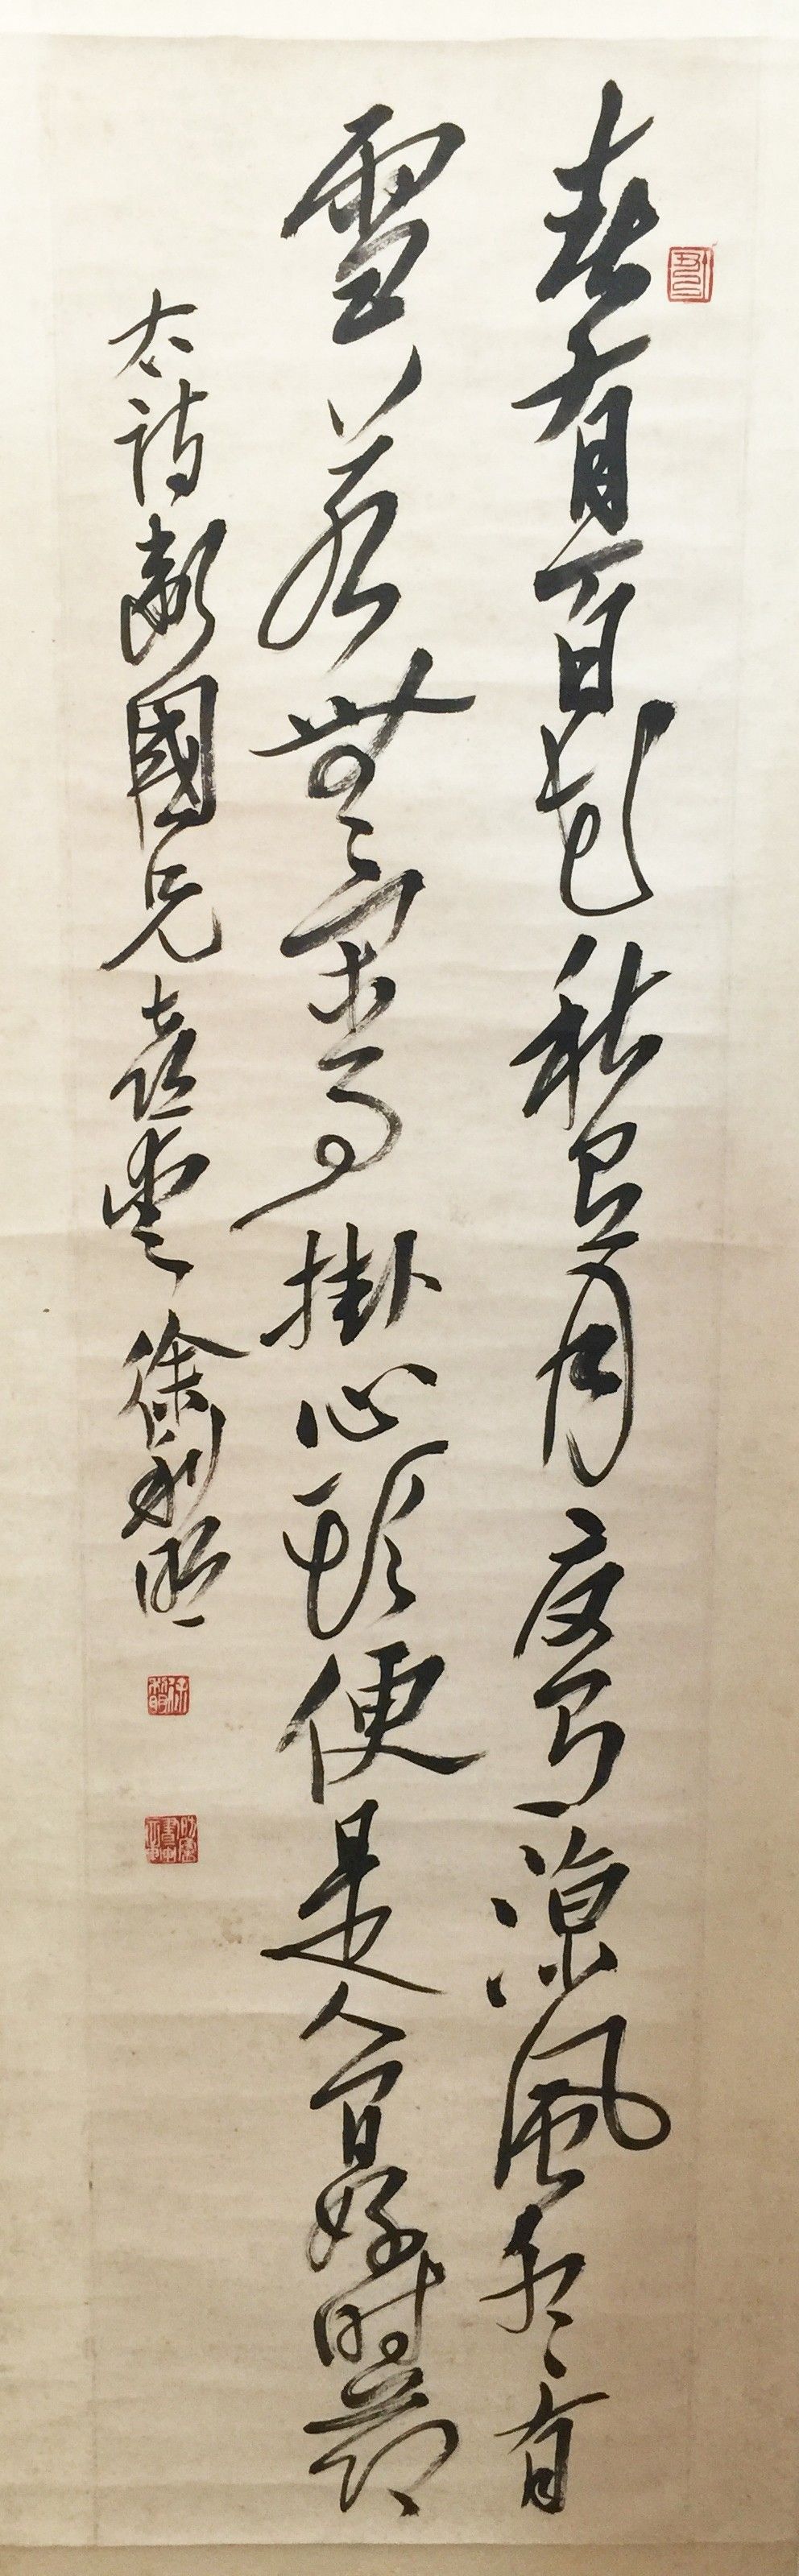 春有百花秋有月夏有涼風冬有
雪若無閑事掛心頭便是人間好時節
右詩國兄喜愛 徐利明